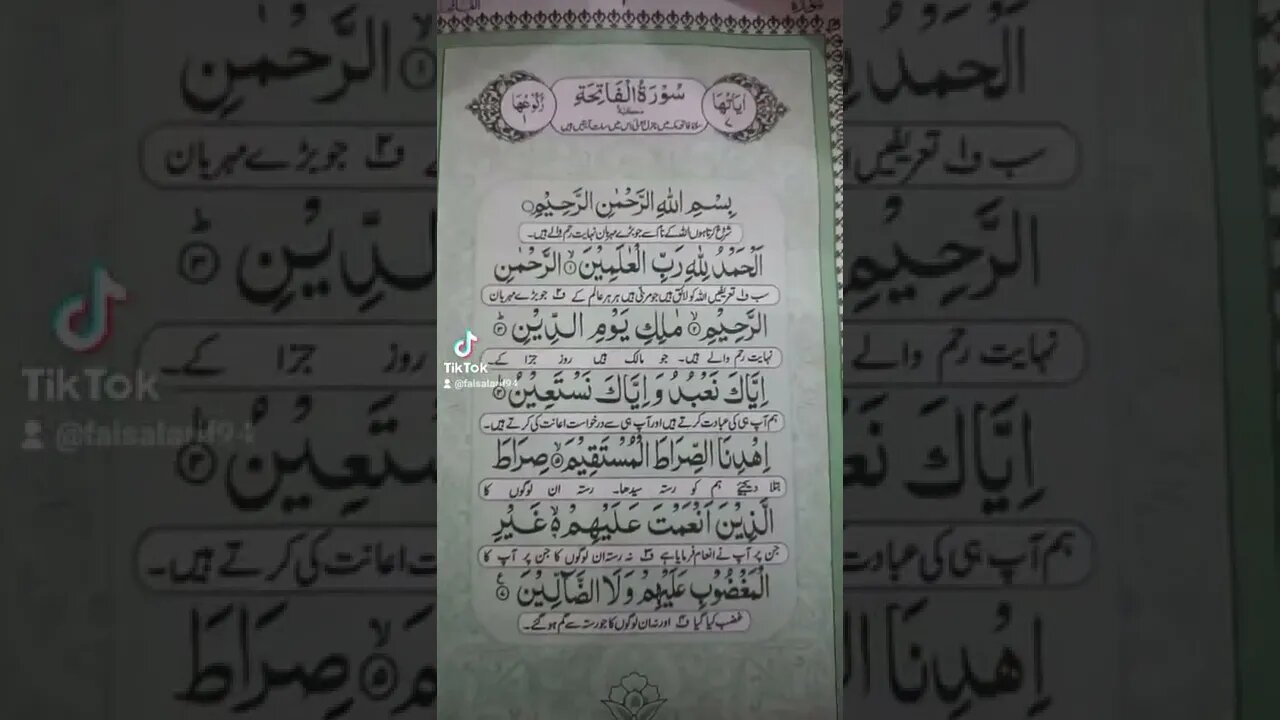 سُوْرَةُ الْفَاتِحَةِ
اٰيَاتُهَا ٧
رُكُوْعُهَا ١
بِسْمِ اللّٰهِ الرَّحْمٰنِ الرَّحِيْمِ
شروع کرتا ہوں اللہ کے نام سے جو بڑے مہربان نہایت رحم والے ہیں۔
اَلْحَمْدُ لِلّٰهِ رَبِّ الْعٰلَمِيْنَ ۙ۱ الرَّحْمٰنِ
سب تعریفیں اللہ کو لائق ہیں جو مربی ہیں ہر ہر عالم کے جو بڑے مہربان
الرَّحِيْمِ ۙ۲ مٰلِكِ يَوْمِ الدِّيْنِ ؕ۳
نہایت رحم والے ہیں۔ جو مالک ہیں روز جزا کے۔
اِيَّاكَ نَعْبُدُ وَ اِيَّاكَ نَسْتَعِيْنُ ؕ۴
ہم آپ ہی کی عبادت کرتے ہیں اور آپ ہی سے درخواست اعانت کی کرتے ہیں۔
اِهْدِنَا الصِّرَاطَ الْمُسْتَقِيْمَ ۙ۵ صِرَاطَ
بتلا دیجئے ہم کو رستہ سیدھا۔ رستہ ان لوگوں کا
الَّذِيْنَ اَنْعَمْتَ عَلَيْهِمْ ۙ۶ غَيْرِ
جن پر آپ نے انعام فرمایا ہے نہ رستہ ان لوگوں کا جن پر آپ کا
الْمَغْضُوْبِ عَلَيْهِمْ وَلَا الضَّآلِّيْنَ ۷
غضب کیا گیا اور نہ ان لوگوں کا جو رستہ سے گم ہو گئے۔
TikTok